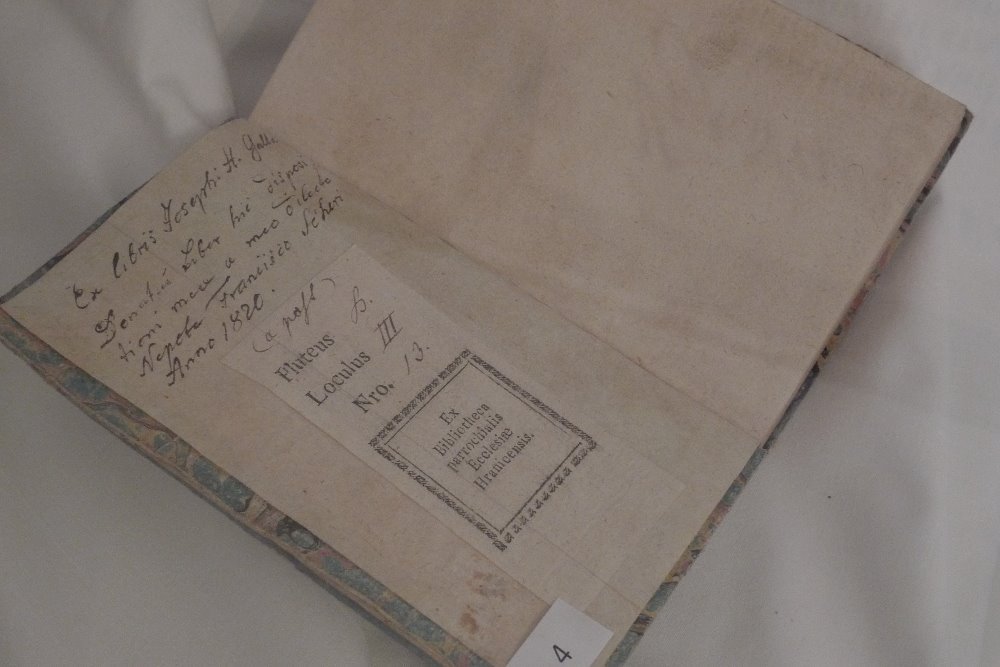 Ex libris Josephi H.
Donatus Liber hic
tioni meae a meo dilecto
Nepote Francisco
Anno 1820.
Fluteus B.
Loculus III
Nro. 13.
Ex
Bibliotheca
parrochialis
Ecclesiæ
Hranicensis.
4